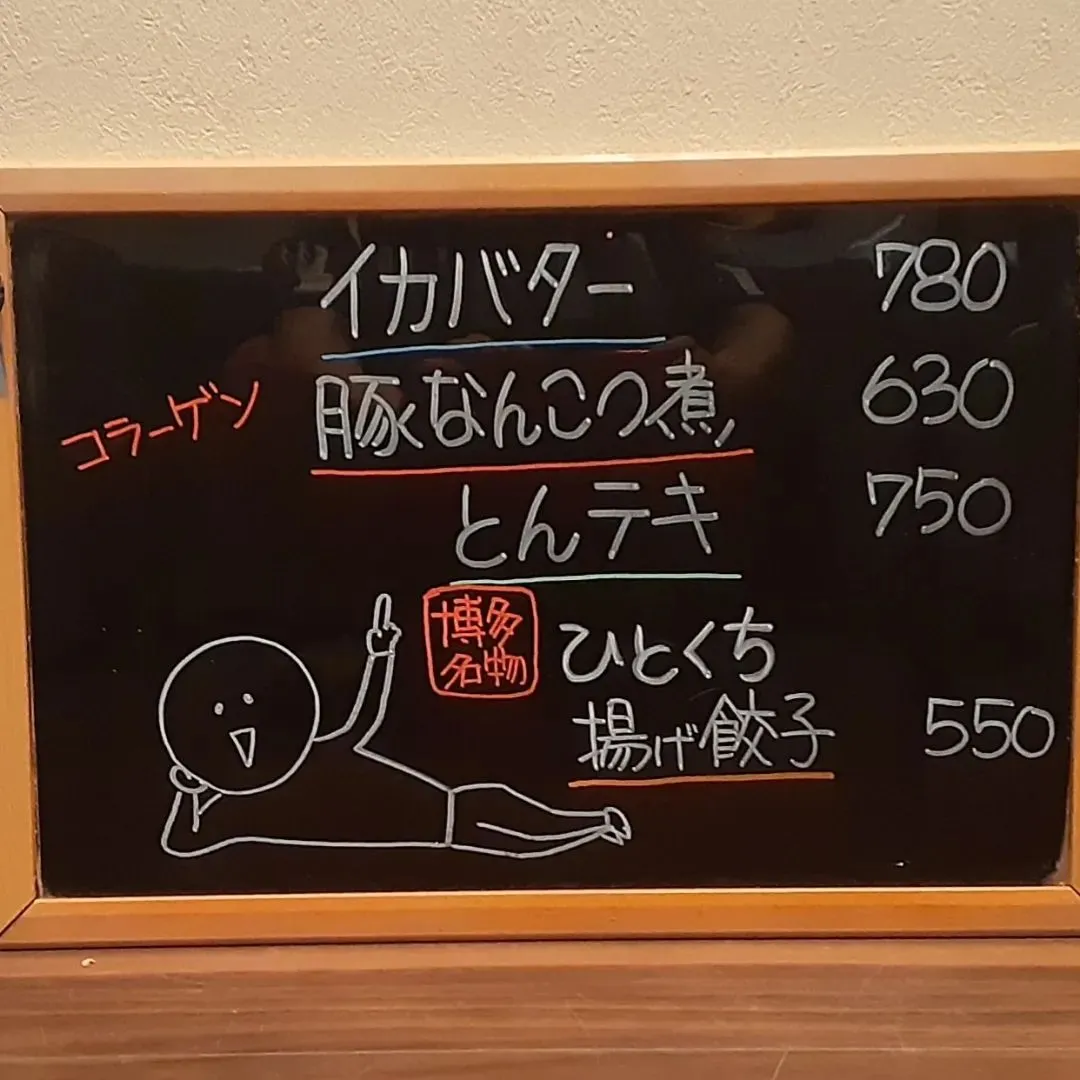 イカバター 780
コラーゲン 豚なんこつ煮 630
とんテキ 750
博多
名物
ひとくち
揚げ餃子 550